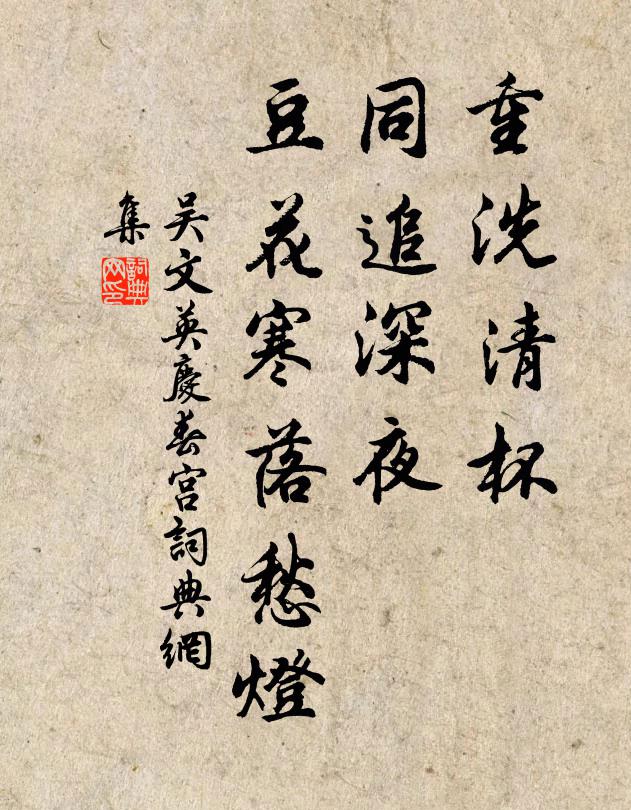 重洗清杯
同追深夜
豆花寒落愁燈
吴文英慶春宮詞典網
集
詞典網印